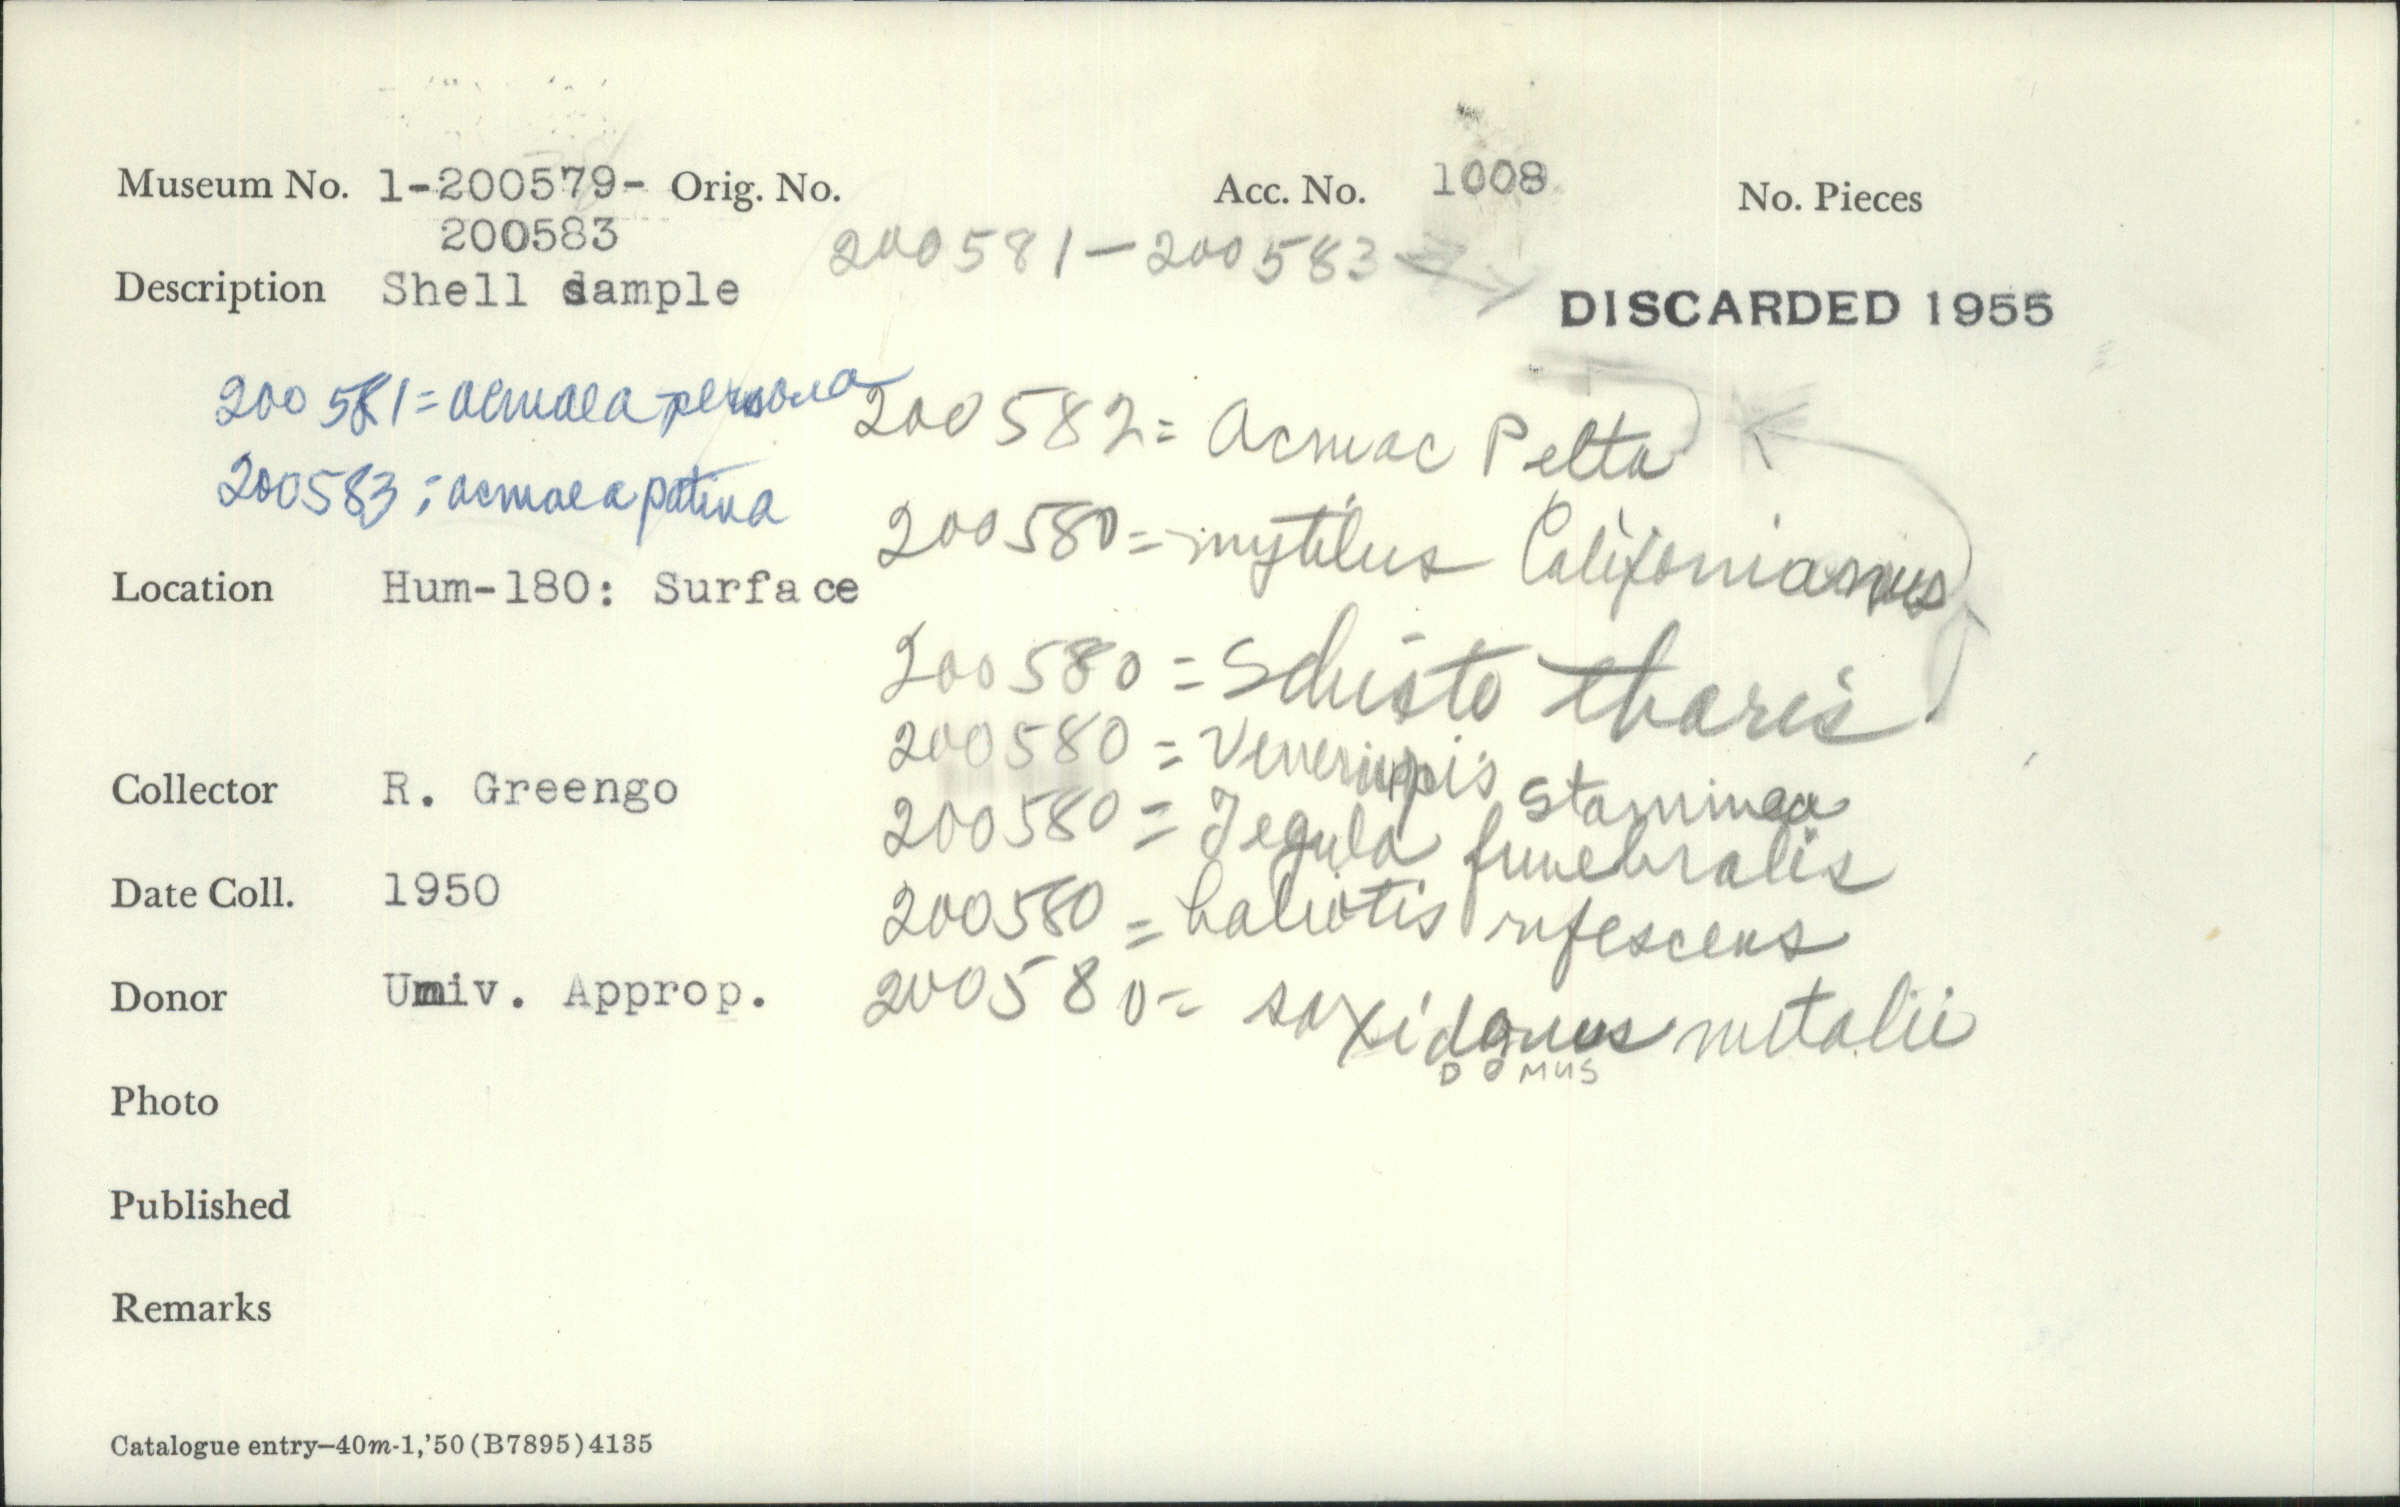 Museum No. 1-200579- Orig. No. Acc. No. 1008 No. Pieces
200583
200581-200583
Description Shell sample
DISCARDED 1955
200581 = acmaea persona
200582 = Acmae Pelta
200583 = acmaea patina
200580 = mytilus Califonianus
Location Hum-180: Surface
200580 = Schisto tharis
200580 = Veneriupis staminea
Collector R. Greengo
200580 = Tegula funebralis
Date Coll. 1950
200580 = haliotis rufescens
Donor Univ. Approp.
200580 = saxidomus nuttalii
DOMUS
Photo
Published
Remarks
Catalogue entry—40m-1,'50 (B7895) 4135